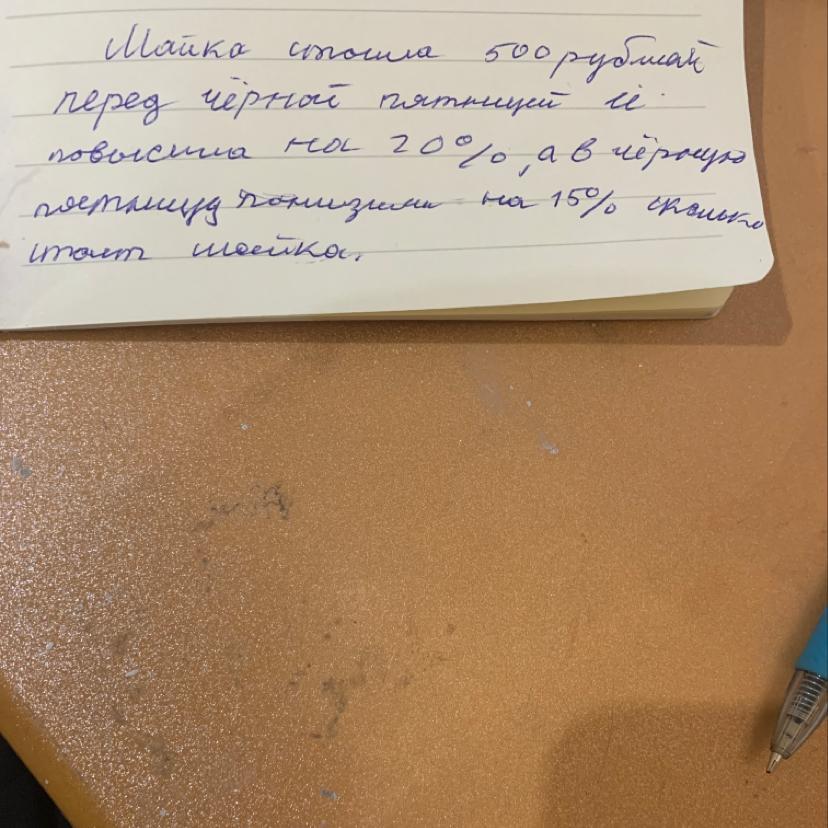 Майка стоила 500 рублей
перед чёрной пятницей её
повысили на 20%, а в чёрную
пятницу понизили на 15% сколько
стоит майка.